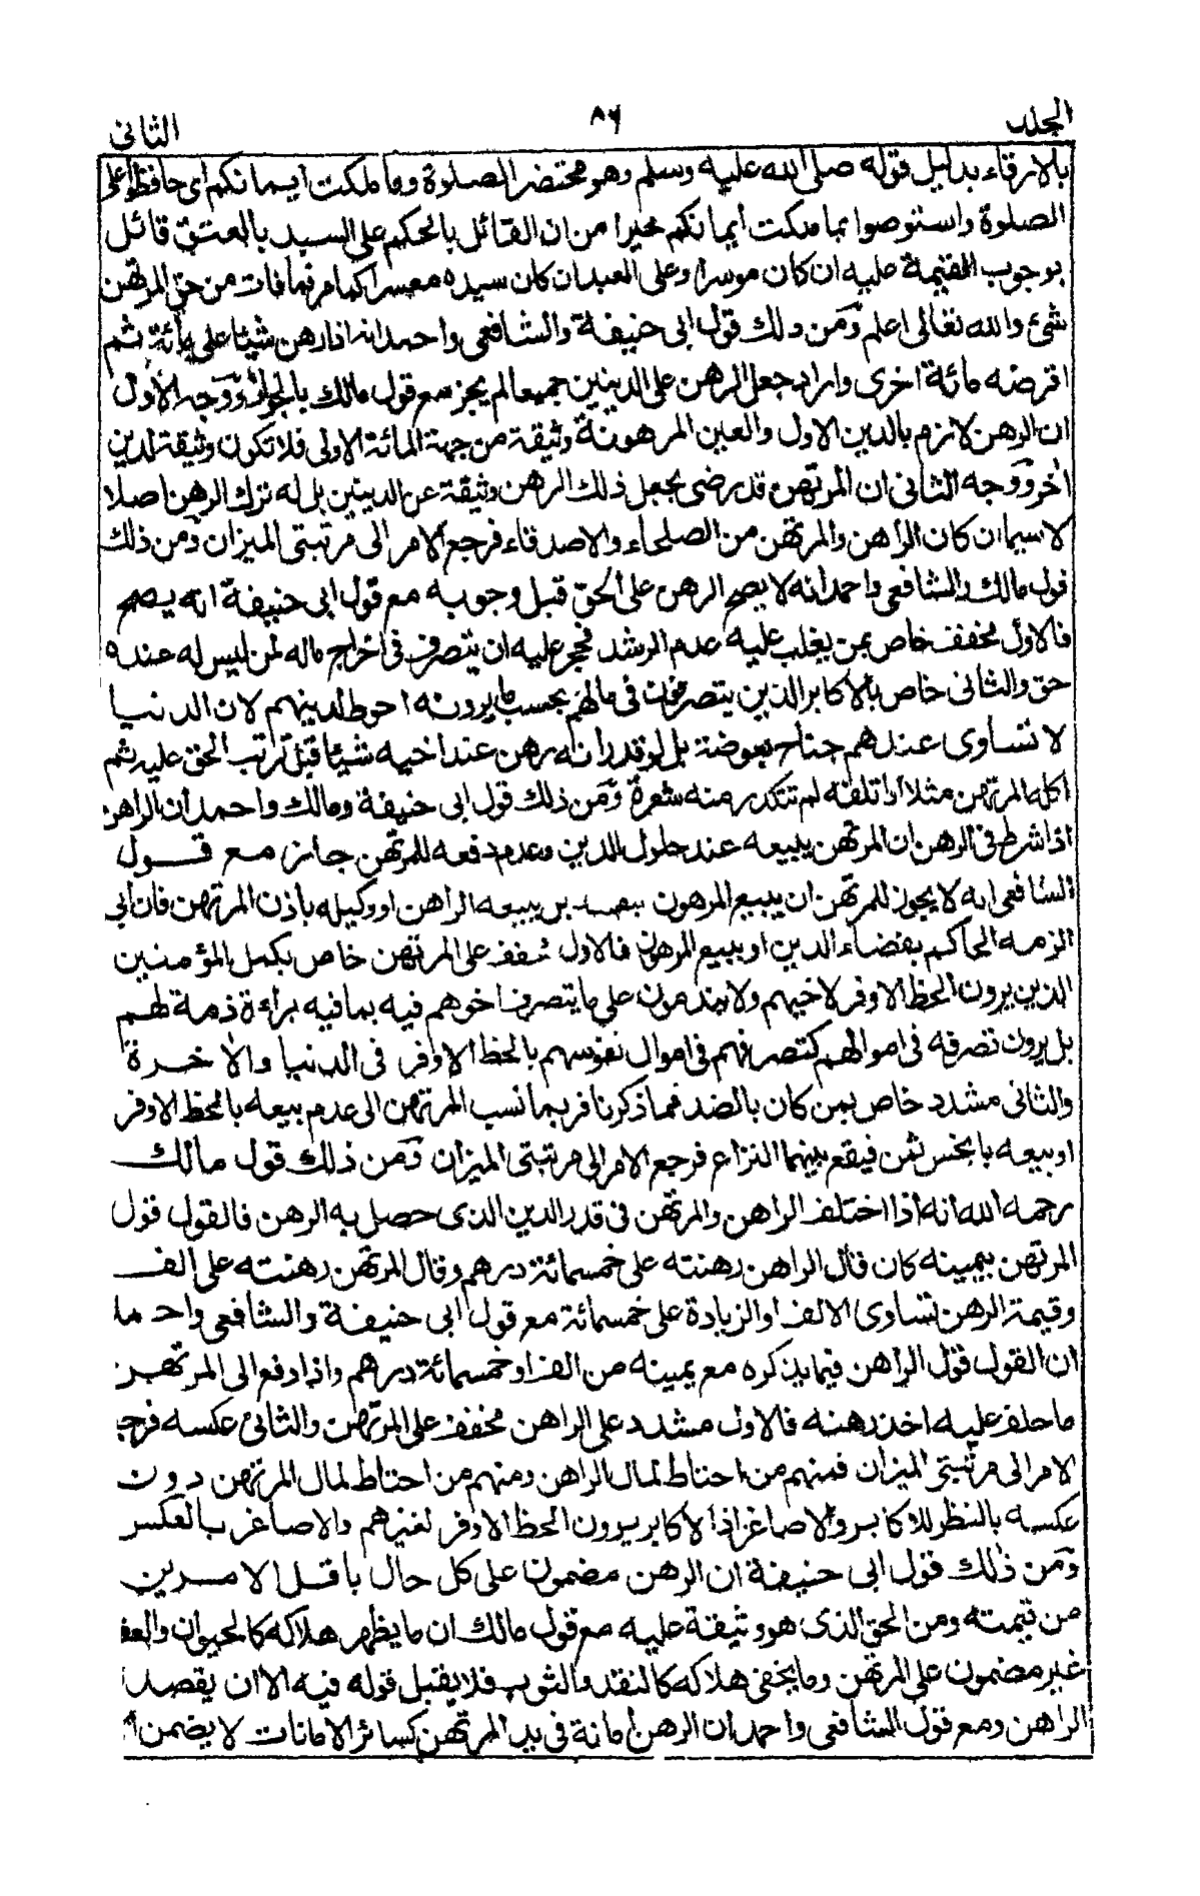 الجلد ٨٦ الثانى
بالارقاء بدليل قوله صلى الله عليه وسلم وهو محتضر الصلوة وما ملكت ايمانكم اى حافظوا على
الصلوة واستوصوا بما ملكت ايمانكم خيرا من ان القائل بالحكم على السيد بالعتق قائل
بوجوب القيمة عليه ان كان موسرا وعلى العبد ان كان سيده معسرا كما مر فما فات من حق المرتهن
شئ والله تعالى اعلم ومن ذلك قول ابى حنيفة والشافعى واحمد انه اذا رهن شيئا على مائة ثم
اقرضه مائة اخرى واراد جعل الرهن على الدينين جميعا لم يجز مع قول مالك بالجواز ووجه الاول
ان الرهن لازم بالدين الاول والعين المرهونة وثيقة من جهة المائة الاولى فلا تكون وثيقة لدين
اٰخر ووجه الثانى ان المرتهن قد رضى بجعل ذلك الرهن وثيقة عن الدينين بل له ترك الرهن اصلا
لا سيما ان كان الراهن والمرتهن من الصلحاء والاصدقاء فرجع الامر الى مرتبتى الميزان ومن ذلك
قول مالك والشافعى واحمد انه لا يصح الرهن على الحق قبل وجوبه مع قول ابى حنيفة انه يصح
فالاول مخفف خاص بمن يغلب عليه عدم الرشد فحجر عليه ان يتصرف فى اخراج ماله لمن ليس له عنده
حق والثانى خاص بالاكابر الذين يتصرفون فى مالهم بحسب ما يرونه احوط لدينهم لان الدنيا
لا تساوى عندهم جناح بعوضة بل لو قدر انه رهن عند اخيه شيئا قبل ترتب الحق عليه ثم
اكله المرتهن مثلا او اتلفه لم تتكدر منه شعرة ومن ذلك قول ابى حنيفة ومالك واحمد ان الراهن
اذا شرط فى الرهن ان المرتهن يبيعه عند حلول الدين وعدم دفعه للمرتهن جائز مع قول
الشافعى انه لا يجوز للمرتهن ان يبيع المرهون بنفسه بل يبيعه الراهن او وكيله باذن المرتهن فان ابى
الزمه الحاكم بقضاء الدين او ببيع المرهون فالاول مخفف على المرتهن خاص بكمل المؤمنين
الذين يرون الحظ الاوفر لاخيهم ولا يندمون على ما يتصرف اخوهم فيه بما فيه براءة ذمة لهم
بل يرون تصرفه فى اموالهم كتصرفهم فى اموال نفوسهم بالحظ الاوفر فى الدنيا والاٰخرة
والثانى مشدد خاص بمن كان بالضد مما ذكرنا فربما نسب المرتهن الى عدم بيعه بالحظ الاوفر
او بيعه بابخس ثمن فيقع بينهما النزاع فرجع الامر الى مرتبتى الميزان ومن ذلك قول مالك
رحمه الله انه اذا اختلف الراهن والمرتهن فى قدر الدين الذى حصل به الرهن فالقول قول
المرتهن بيمينه كان قال الراهن رهنته على خمسمائة درهم وقال المرتهن رهنته على الف
وقيمة الرهن تساوى الالف او الزيادة على خمسمائة مع قول ابى حنيفة والشافعى واحمد
ان القول قول الراهن فيما يذكره مع يمينه من الف او خمسمائة درهم واذا دفع الى المرتهن
ما حلف عليه اخذ رهنه فالاول مشدد على الراهن مخفف على المرتهن والثانى عكسه فرجع
الامر الى مرتبتى الميزان فمنهم من احتاط لمال الراهن ومنهم من احتاط لمال المرتهن دون
عكسه بالنظر للاكابر والاصاغر اذ الاكابر يرون الحظ الاوفر لغيرهم والاصاغر بالعكس
ومن ذلك قول ابى حنيفة ان الرهن مضمون على كل حال باقل الامرين
من قيمته ومن الحق الذى هو وثيقة عليه مع قول مالك ان ما يظهر هلاكه كالحيوان والعقار
غير مضمون على المرتهن وما يخفى هلاكه كالنقد والثوب فلا يقبل قوله فيه الا ان يقصد
الراهن ومع قول الشافعى واحمد ان الرهن امانة فى يد المرتهن كسائر الامانات لا يضمن